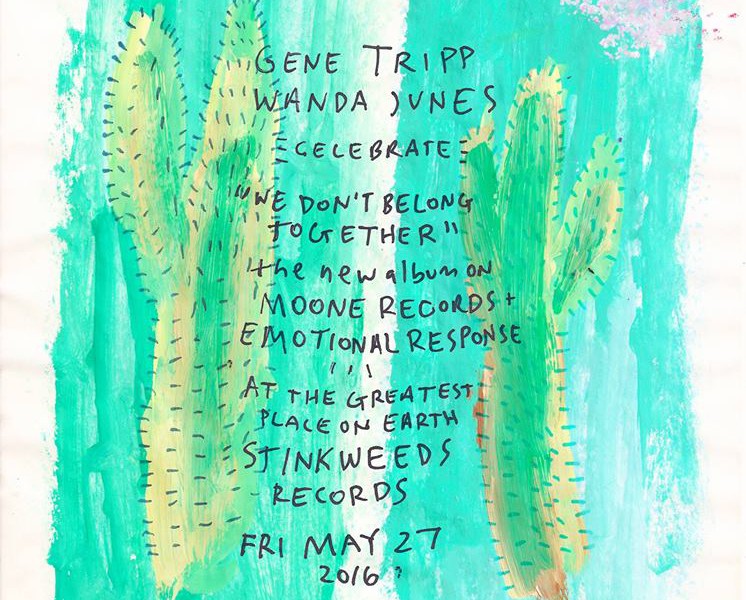 GENE TRIPP
WANDA JUNES
CELEBRATE
"WE DON'T BELONG
TOGETHER"
the new album ON
MOONE RECORDS +
EMOTIONAL RESPONSE
AT THE GREATEST
PLACE ON EARTH
STINKWEEDS
RECORDS
FRI MAY 27
2016